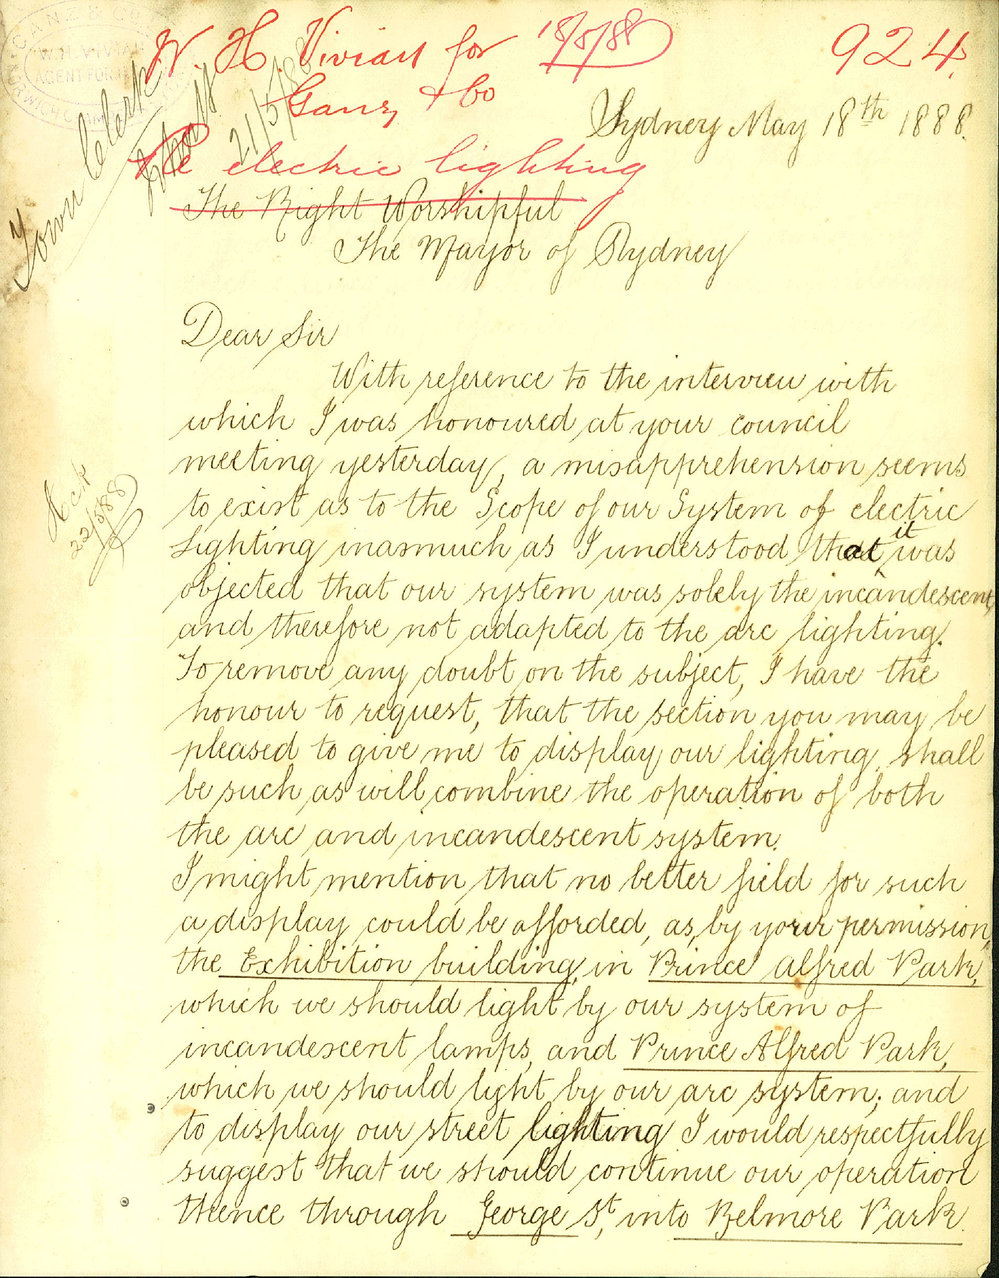 GANZ & CO
W.H. VIVIAN
AGENT FOR
W. H Vivian for 18/5/88 924.
Ganz & Co
Sydney May 18th 1888.
Re electric lighting
Town Clerk
21/5/88
The Right Worshipful
The Mayor of Sydney
Dear Sir
With reference to the interview with
which I was honoured at your council
meeting yesterday, a misapprehension seems
to exist as to the Scope of our System of electric
Lighting inasmuch as I understood that it was
objected that our system was solely the incandescent,
and therefore not adapted to the arc lighting.
To remove any doubt on the subject, I have the
honour to request, that the section you may be
pleased to give me to display our lighting, shall
be such as will combine the operation of both
the arc and incandescent system.
I might mention that no better field for such
a display could be afforded, as, by your permission,
the Exhibition building, in Prince Alfred Park,
which we should light by our system of
incandescent lamps, and Prince Alfred Park,
which we should light by our arc system; and
to display our street lighting I would respectfully
suggest that we should continue our operation
thence through George St, into Belmore Park.
22/5/88